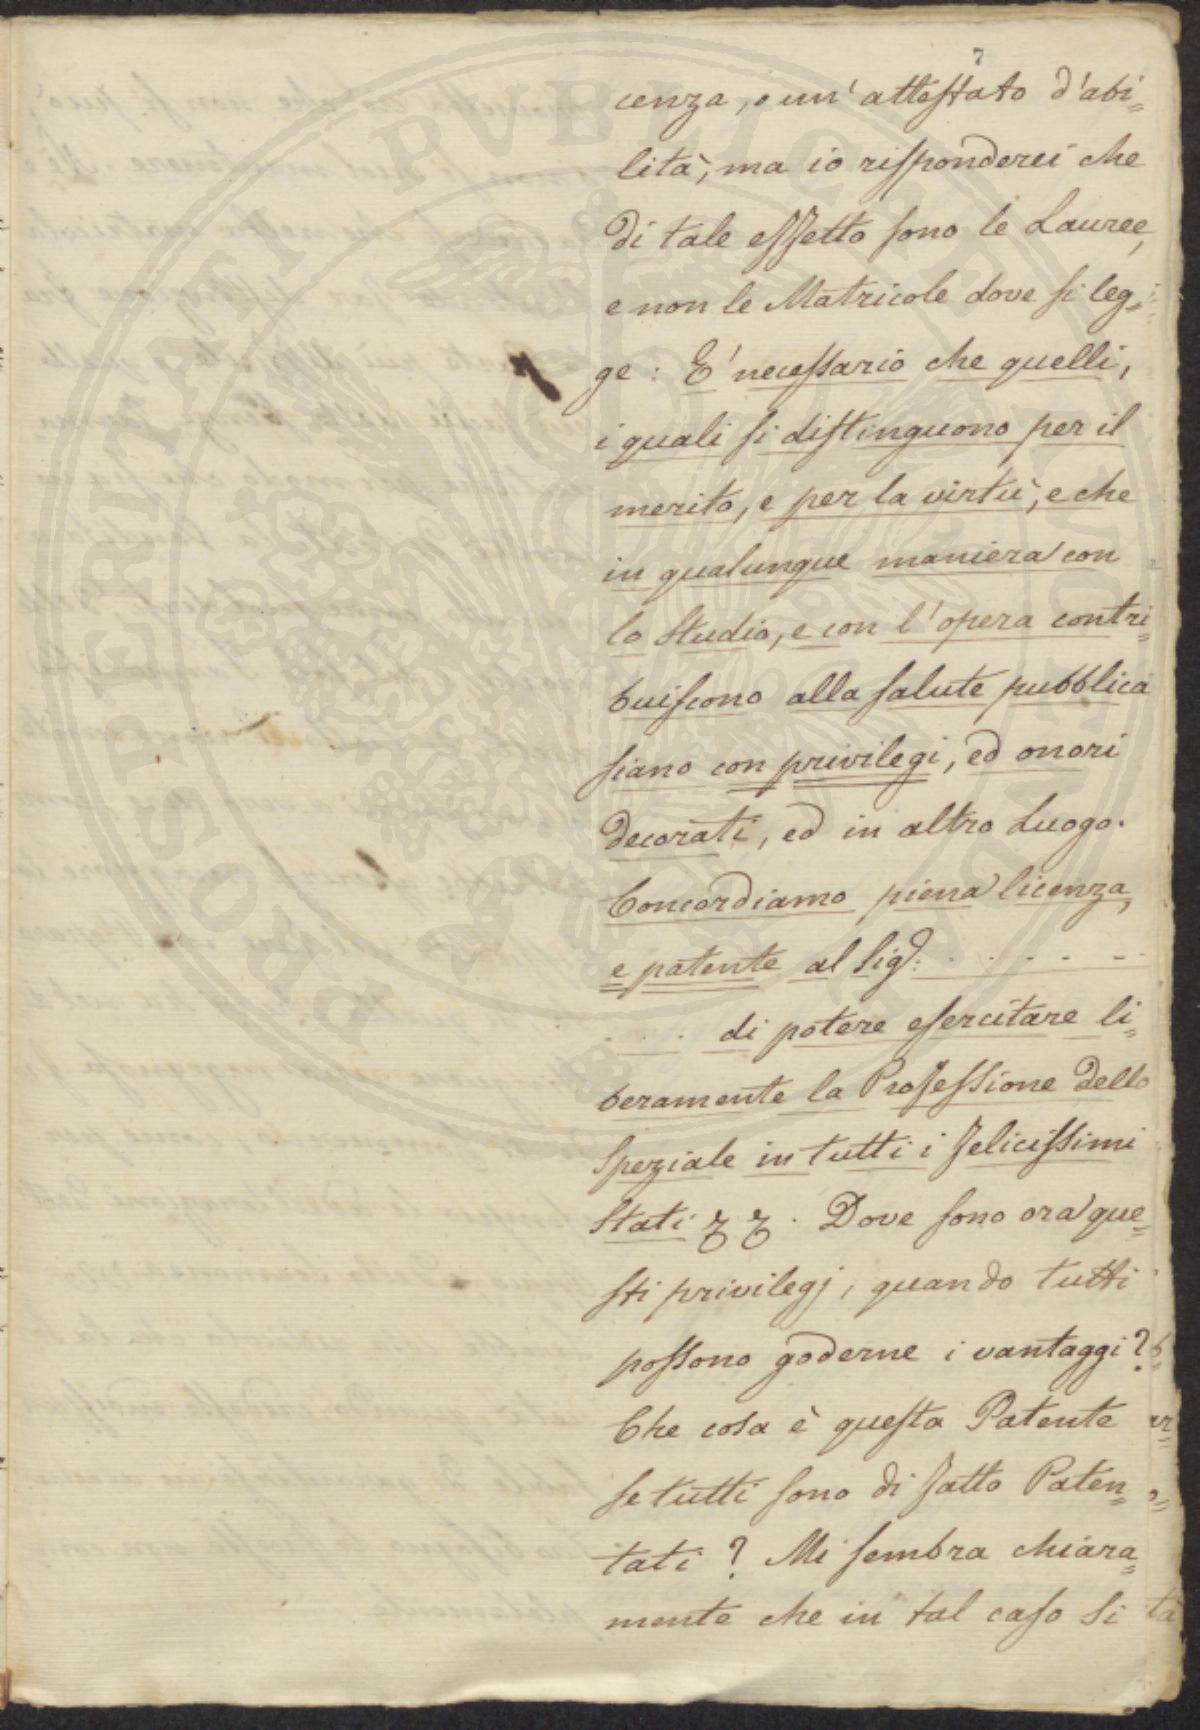 7
cenza, o un' attestato d'abi=
lità, ma io risponderei che
di tale effetto sono le Lauree,
e non le Matricole dove si leg=
ge: E' necessario che quelli,
i quali si distinguono per il
merito, e per la virtù, e che
in qualunque maniera con
lo Studio, e con l'opera contri=
buiscono alla salute pubblica
siano con privilegi, ed onori
decorati, ed in altro Luogo.
Concordiamo piena licenza,
e patente al Sig.r . . . . .
. . . di potere esercitare li=
beramente la Professione dello
Speziale in tutti i felicissimi
Stati . Dove sono ora que=
sti privilegj, quando tutti
possono goderne i vantaggi?
Che cosa è questa Patente
se tutti sono di fatto Paten=
tati? Mi sembra chiara=
mente che in tal caso si
PROSPERITATI PVBLICAE